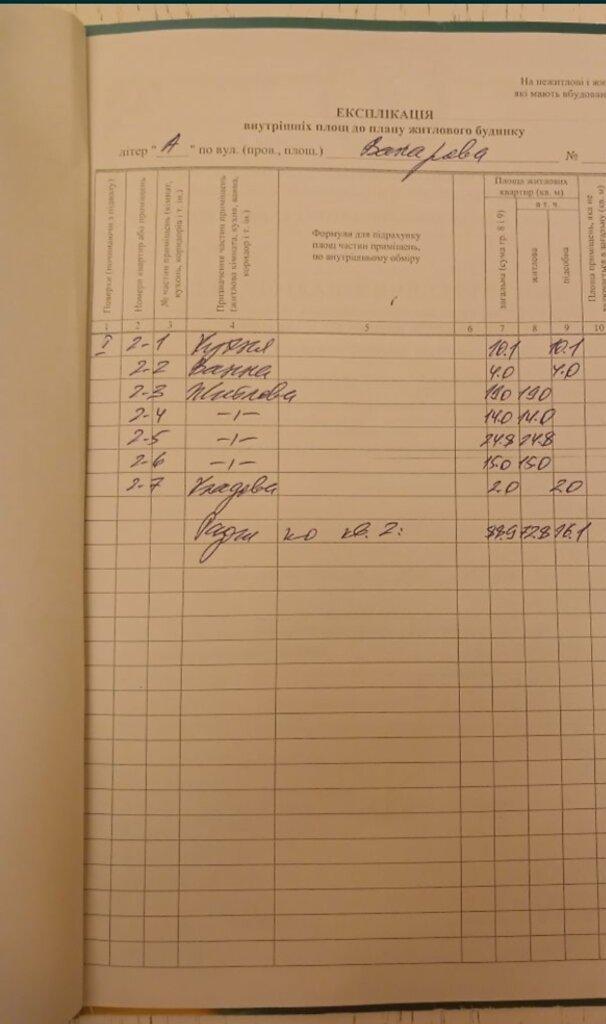 На нежитлові і жи
які мають вбудован
ЕКСПЛІКАЦІЯ
внутрішніх площ до плану житлового будинку
літер "А" по вул. (пров., площ.) №
Поверхи (починаючи з підвалу)
Номери квартир або приміщень
№ частин приміщень (кімнат, кухонь, коридорів і т. ін.)
Призначення частин приміщень (житлова кімната, кухня, ванна, коридор і т. ін.)
Формули для підрахунку
площ частин приміщень,
по внутрішньому обміру
Площа житлових
квартир (кв. м)
в т. ч.
загальна (сума гр. 8 і 9)
житлова
підсобна
Площа приміщень, яка не
1 2 3 4 5 6 7 8 9 10
I 2-1 Кухня 10.1 10.1
2-2 Ванна 4.0 4.0
2-3 Житлова 19.0 19.0
2-4 -"- 14.0 14.0
2-5 -"- 24.8 24.8
2-6 -"- 15.0 15.0
2-7 Кладова 2.0 2.0
по кв. 2: 88.9 72.8 16.1